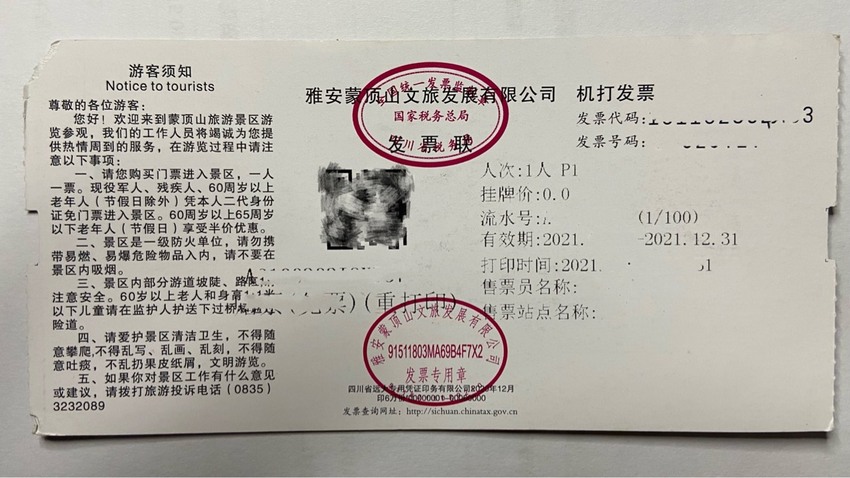 游客须知
Notice to tourists
尊敬的各位游客：
您好！欢迎来到蒙顶山旅游景区游
览参观，我们的工作人员将竭诚为您提
供热情周到的服务，在游览过程中请注
意以下事项：
一、请您购买门票进入景区，一人
一票。现役军人、残疾人、60周岁以上
老年人（节假日除外）凭本人二代身份
证免门票进入景区。60周岁以上65周岁
以下老年人（节假日）享受半价优惠。
二、景区是一级防火单位，请勿携
带易燃、易爆危险物品入内，请不要在
景区内吸烟。
三、景区内部分游道坡陡、路
注意安全。60岁以上老人和身高
以下儿童请在监护人护送下过桥
险道。
四、请爱护景区清洁卫生，不得随
意攀爬,不得乱写、乱画、乱刻，不得随
意吐痰，不乱扔果皮纸屑，文明游览。
五、如果你对景区工作有什么意见
或建议，请拨打旅游投诉电话（0835）
3232089
雅安蒙顶山文旅发展有限公司 机打发票
全国统一发票监制章
国家税务总局
四川省税务局
发票联
发票代码:
发票号码:
人次:1人 P1
挂牌价:0.0
流水号: (1/100)
有效期:2021. -2021.12.31
打印时间:2021.
售票员名称:
售票站点名称:
票)(重打印)
雅安蒙顶山文旅发展有限公司
91511803MA69B4F7X2
发票专用章
发票查询网址: http://sichuan.chinatax.gov.cn